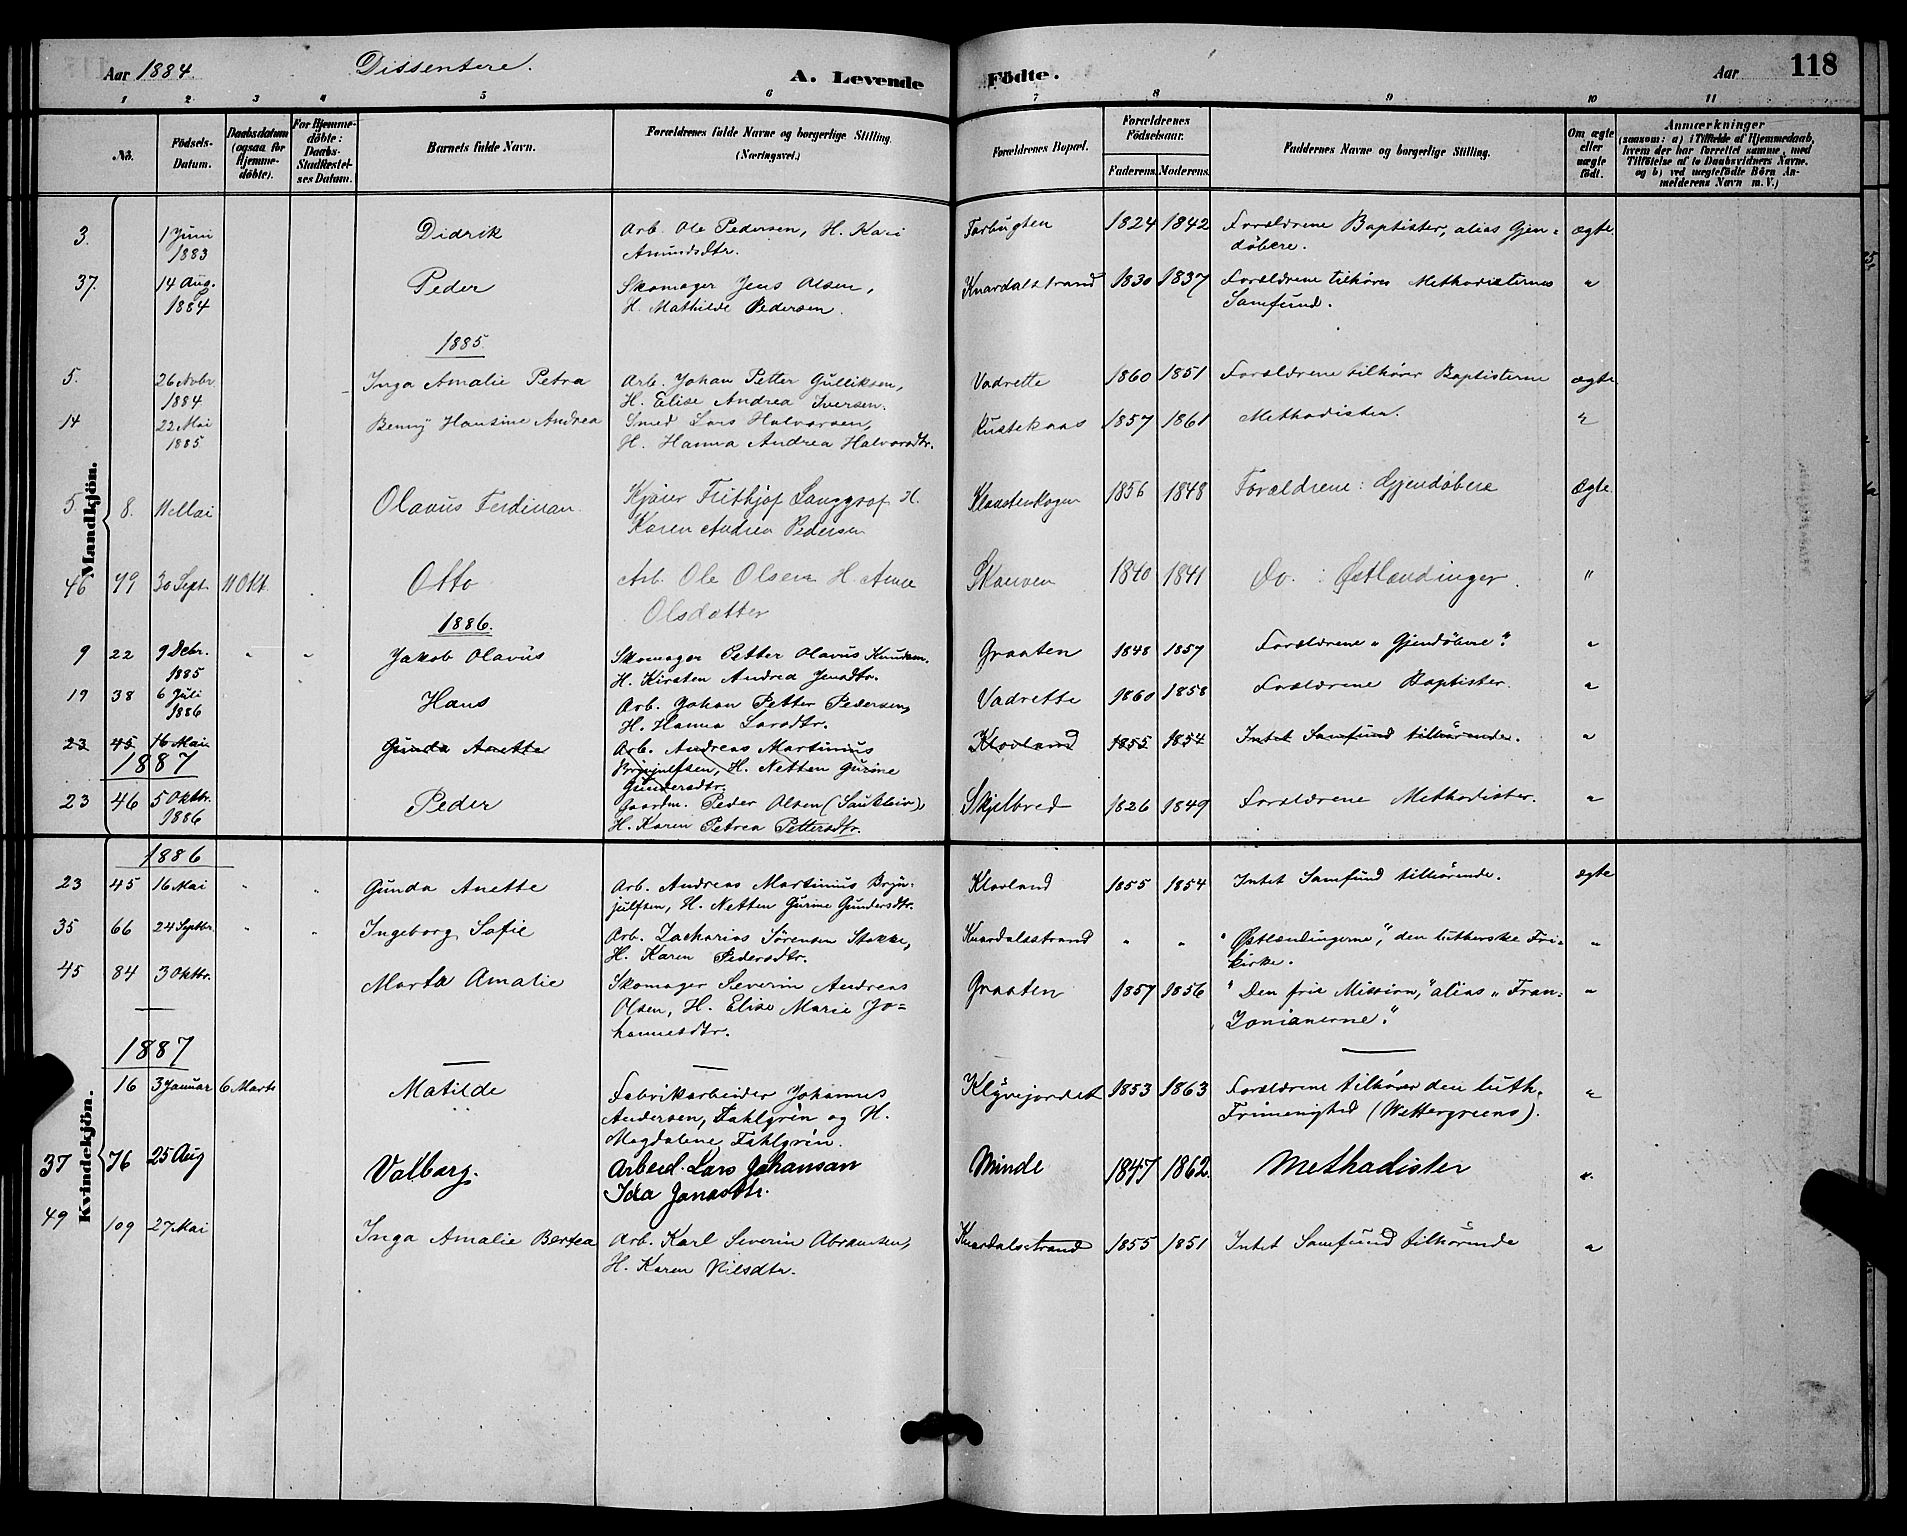 Aar 1884 Dissentere. A. Levende Födte. Aar 118
1 2 3 4 5 6 7 8 9 10 11
No. Födsels-Datum. Daabsdatum (ogsaa for Hjemmedöbte). For Hjemmedöbte: Daabs-Stadfæstelses Datum. Barnets fulde Navn. Forældrenes fulde Navne og borgerlige Stilling. (Næringsvei.) Forældrenes Bopæl. Forældrenes Födselsaar. Faderens. Moderens. Faddernes Navne og borgerlige Stilling. Om ægte eller uægte födt. Anmærkninger (saasom: a) i Tilfælde af Hjemmedaab, hvem der har forrettet samme, med Tilföielse af to Daabsvidners Navne. og b) ved uægtefödte Börn Anmelderens Navn m. V.)
Mandkjön.
3. 1 Juni Didrik Arb. Ole Pedersen, H. Kari Farbugten 1824 1842 Forældrene Baptister, alias Gjen-
1883 Amundsdtr. döbere. ægte.
37. 14 Aug. Peder Skomager Jens Olsen, Knardalstrand 1830 1837 Forældrene tilhöres Methodisternes "
1884 H. Mathilde Pedersen. Samfund.
1885
5. 26 Novbr. Inga Amalie Petra Arb. Johan Petter Gulliksen, Vadrette 1860 1851 Forældrene tilhörer Baptisterne ægte
1884 H. Elise Andrea Iversen.
14 22 Mai Benny Hansine Andrea Smed Lars Halvorsen, 1857 1861 Methodister. "
1885 H. Hanna Andrea Halvorsdtr.
5 8. 11 Mai Olavus Ferdinan. Kjörer Frithjof Langgraf H. 1856 1848 Forældrene: Gjendöbere Ægte.
Karen Andrea Pedersen
46 79 30 Sept. 11 Okt. Otto Arb. Ole Olsen H. Anne 1840 1841 Do. : Östlændinger. "
Olsdatter
1886.
9 22 9 Debr. " " Jakob Olavus Skomager Petter Olavus Knudsen. Graaten 1848 1857 Forældrene "Gjendöbere". "
1885 H. Kirsten Andrea Jensdtr.
19 38 6 Juli Hans Arb. Johan Petter Pedersen, Vadrette 1860 1858 Forældrene Baptister. "
1886 H. Hanna Larsdtr.
23 45 16 Mai Gunda Anette Arb. Andreas Martinius Klovland 1855 1854 Intet Samfund tilhörende. "
1887 Brynjulfsen, H. Netten Gurine
Gundersdtr.
23 46 5 Oktbr. Peder Gaardm. Peder Olsen (Saukleiv), Skjelbred 1826 1849 Forældrene Methodister. "
1886 H. Karen Petrea Pettersdtr.
Kvindekjön.
1886
23 45 16 Mai " " Gunda Anette Arb. Andreas Martinius Bryn- Klovland 1855 1854 Intet Samfund tilhörende. ægte
julfsen, H. Netten Gurine Gundersdtr.
35 66 24 Septbr. " " Ingeborg Sofie Arb. Zacharias Sörensen Stokke, Knardalsstrand " " "Östlændingerne", den lutherske Fri- "
H. Karen Pedersdtr. kirke.
45 84 3 Oktbr. Marta Amalie Skomager Severin Andreas Graaten 1857 1856 "Den frie Mission," alias "Fran- "
Olsen, H. Elise Marie Jo- zonianerne".
hannesdtr.
1887
16 3 Januar 6 Marts Matilde Fabrikarbeider Johannes Klyvejordet 1853 1863 Forældrene tilhörer den luth. "
Andersen, Fahlgrén og H. Frimenighed (Wettergreens).
Magdalene Fahlgrén.
37 76 25 Aug Valborg. Arbeid. Lars Johansan Minde 1847 1862. Methadister "
Ida Jonasdtr.
49 109 27 Mai Inga Amalie Bertea Arb. Karl Severin Abramsen, Knardalsstrand 1855 1851 Intet Samfund tilhörende "
H. Karen Nilsdtr.